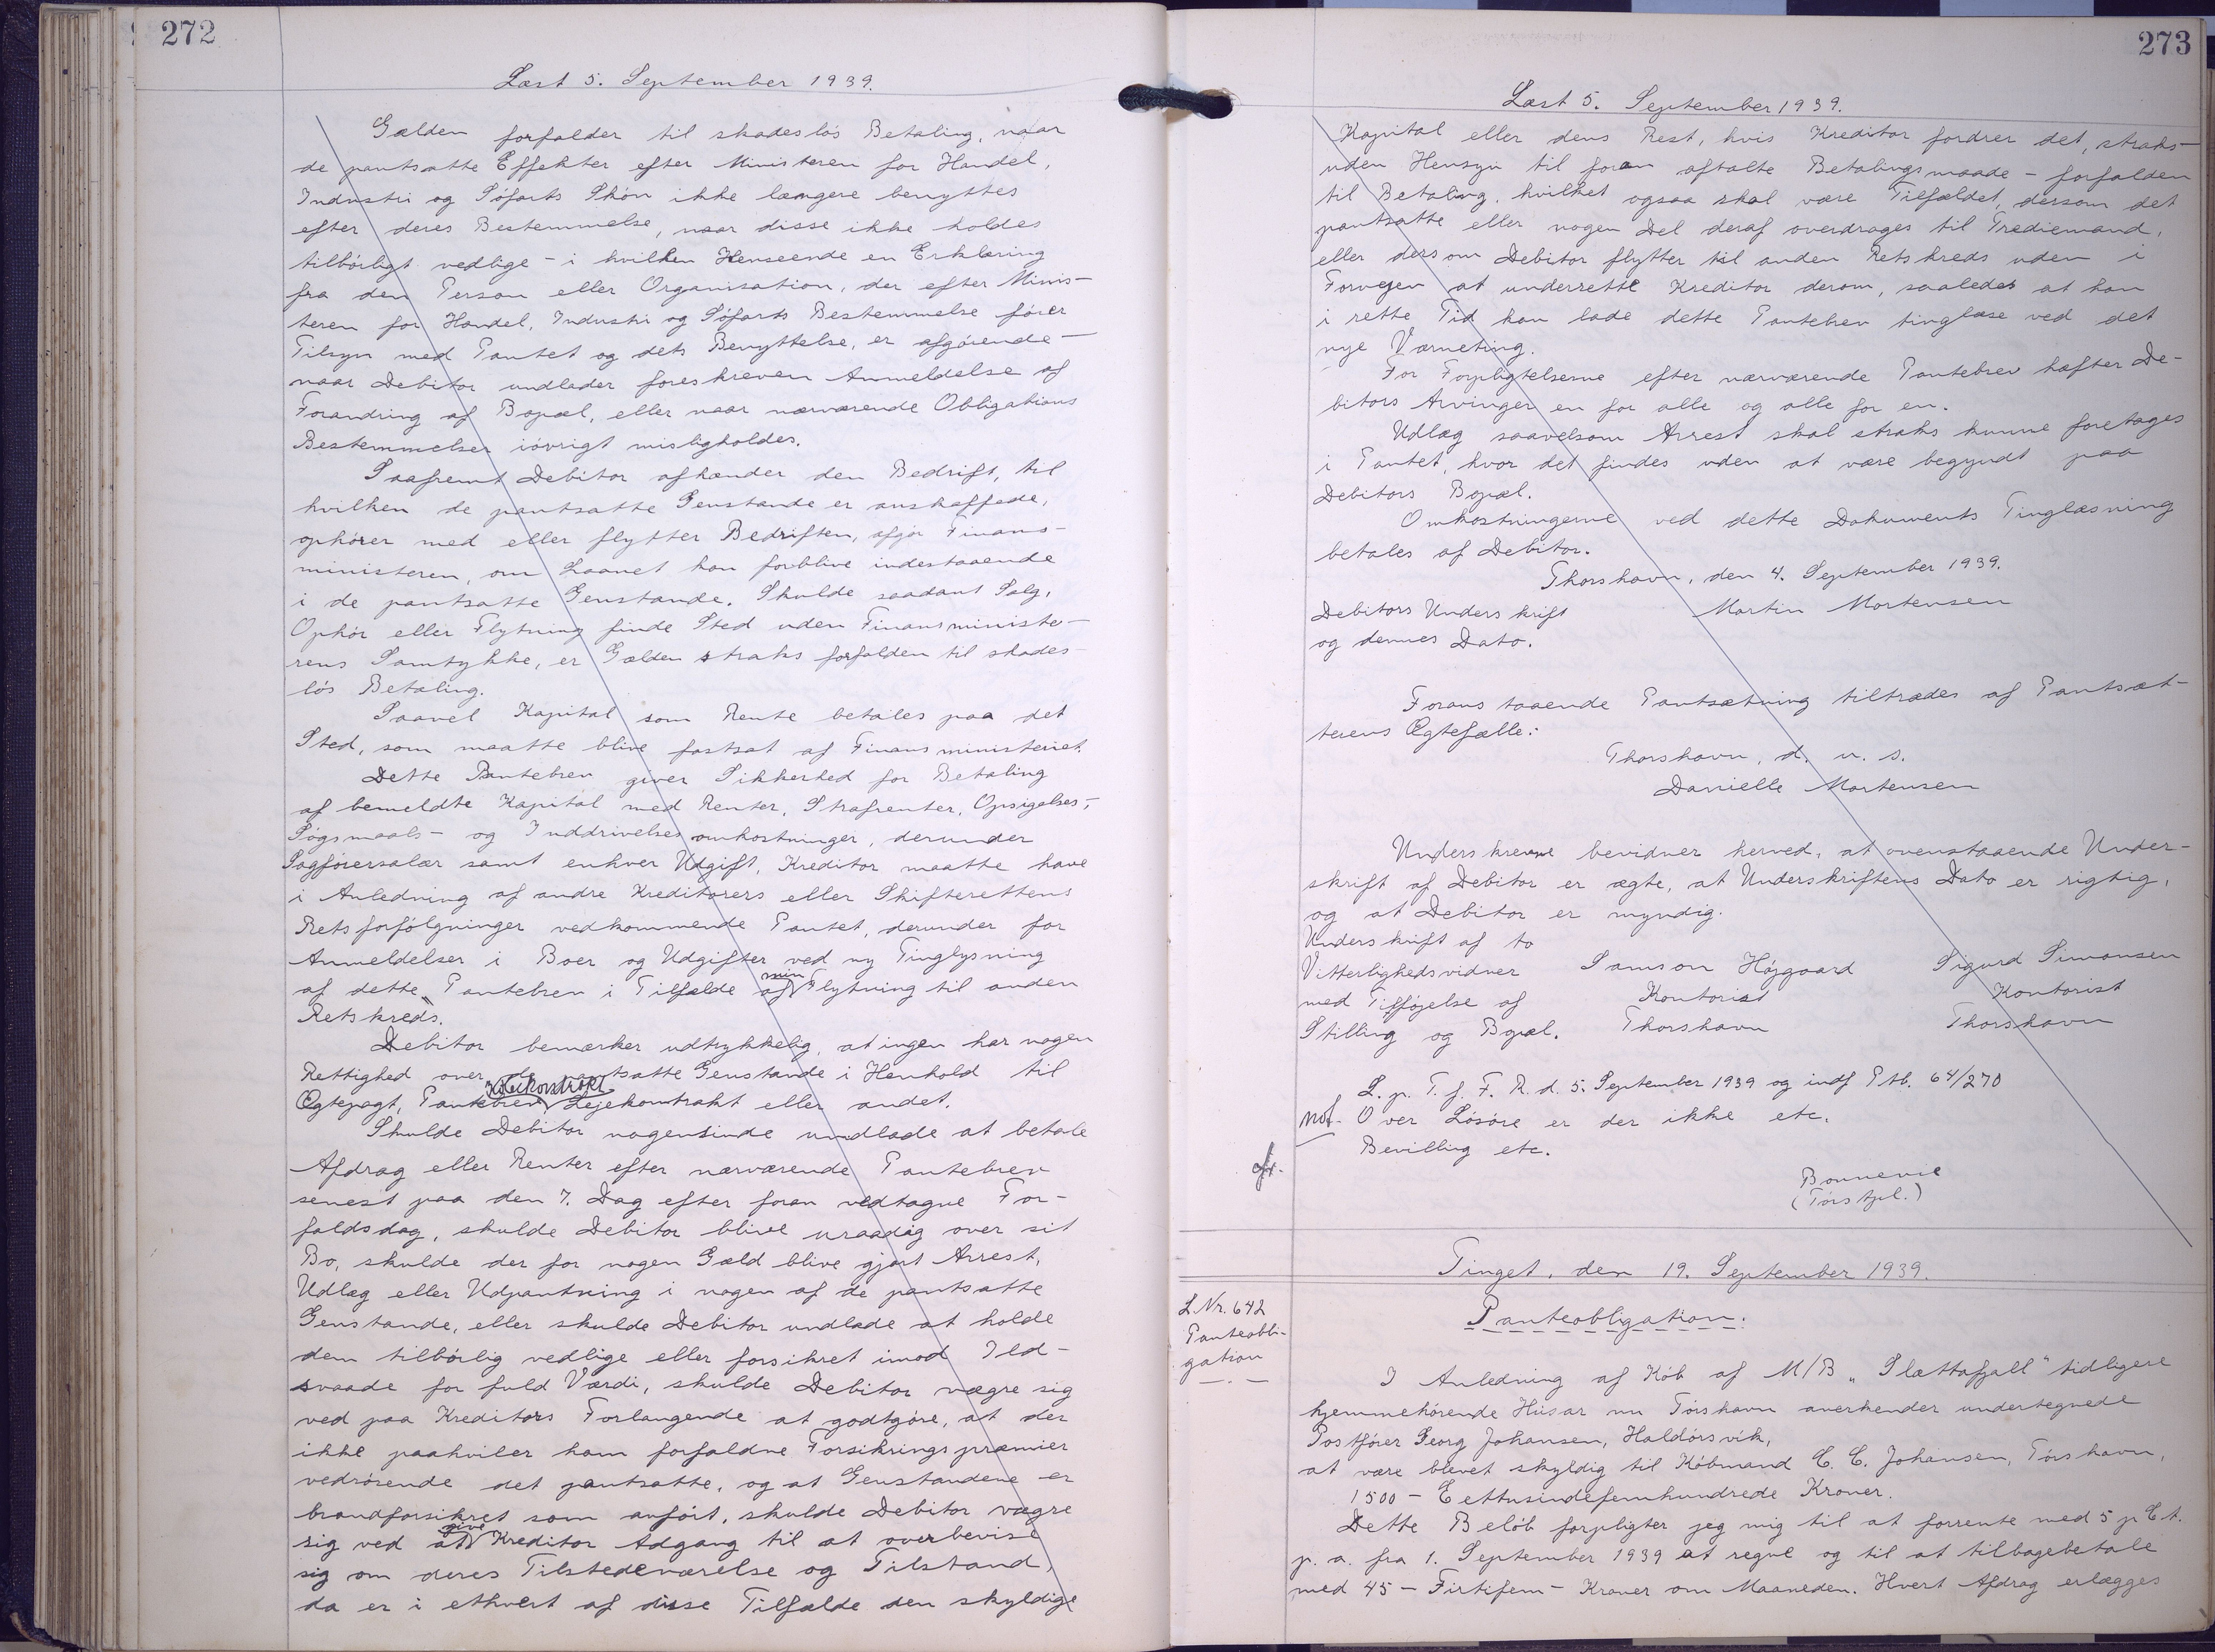 272
Læst 5. September 1939.
Gælden forfalder til skadesløs Betaling, naar
de pantsatte Effekter efter Ministeren for Handel,
Industri og Søfarts Skøn ikke længere benyttes
efter deres Bestemmelse, naar disse ikke holdes
tilbørligt vedlige - i hvilken Henseende en Erklæring
fra den Person eller Organisation, der efter Minis-
teren for Handel, Industri og Søfarts Bestemmelse fører
Tilsyn med Pantet og dets Benyttelse, er afgørende -
naar Debitor undlader foreskreven Anmeldelse af
Forandring af Bopæl, eller naar nærværende Obligations
Bestemmelser iøvrigt misligholdes.
Saafremt Debitor afhænder den Bedrift, til
hvilken de pantsatte Genstande er anskaffede,
ophører med eller flytter Bedriften, afgør Finans-
ministeren, om Laanet kan forblive indestaaende
i de pantsatte Genstande. Skulde saadant Salg,
Ophør eller Flytning finde Sted uden Finansministe-
rens Samtykke, er Gælden straks forfalden til skades-
løs Betaling.
Saavel Kapital som Rente betales paa det
Sted, som maatte blive fastsat af Finansministeriet.
Dette Pantebrev giver Sikkerhed for Betaling
af bemeldte Kapital med Renter, Strafrenter, Opsigelses-,
Søgsmaals- og Inddrivelsesomkostninger, derunder
Sagførersalær samt enhver Udgift, Kreditor maatte have
i Anledning af andre Kreditorers eller Skifterettens
Retsforfølgninger vedkommende Pantet, derunder for
Anmeldelser i Boer og Udgifter ved ny Tinglysning
af dette Pantebrev i Tilfælde af min Flytning til anden
Retskreds.
Debitor bemærker udtrykkelig, at ingen har nogen
Rettighed over de pantsatte Genstande i Henhold til
Ægtepagt, Pantebrev, Købekontrakt Lejekontrakt eller andet.
Skulde Debitor nogensinde undlade at betale
Afdrag eller Renter efter nærværende Pantebrev
senest paa den 7. Dag efter foran vedtagne For-
faldsdag, skulde Debitor blive uraadig over sit
Bo, skulde der for nogen Gæld blive gjort Arrest,
Udlæg eller Udpantning i nogen af de pantsatte
Genstande, eller skulde Debitor undlade at holde
dem tilbørlig vedlige eller forsikret imod Ild-
svaade for fuld Værdi, skulde Debitor vægre sig
ved paa Kreditors Forlangende at godtgøre, at der
ikke paahviler ham forfaldne Forsikringspræmier
vedrørende det pantsatte, og at Genstandene er
brandforsikret som anført, skulde Debitor vægre
sig ved at give Kreditor Adgang til at overbevise
sig om deres Tilstedeværelse og Tilstand,
da er i ethvert af disse Tilfælde den skyldige
273
Læst 5. September 1939.
Kapital eller dens Rest, hvis Kreditor fordrer det, straks -
uden Hensyn til foran aftalte Betalingsmaade - forfalden
til Betaling, hvilket ogsaa skal være Tilfældet, dersom det
pantsatte eller nogen Del deraf overdrages til Trediemand,
eller dersom Debitor flytter til anden Retskreds uden i
Forvejen at underrette Kreditor derom, saaledes at han
i rette Tid kan lade dette Pantebrev tinglæse ved det
nye Værneting.
For Forpligtelserne efter nærværende Pantebrev hæfter De-
bitors Arvinger en for alle og alle for en.
Udlæg saavelsom Arrest skal straks kunne foretages
i Pantet, hvor det findes uden at være begyndt paa
Debitors Bopæl.
Omkostningerne ved dette Dokuments Tinglæsning
betales af Debitor.
Thorshavn, den 4. September 1939.
Debitors Underskrift Martin Mortensen
og dennes Dato.
Foranstaaende Pantsætning tiltrædes af Pantsæt-
terens Ægtefælle:
Thorshavn, d. u. s.
Danielle Mortensen
Underskrevne bevidner herved, at ovenstaaende Under-
skrift af Debitor er ægte, at Underskriftens Dato er rigtig,
og at Debitor er myndig.
Underskrift af to
Vitterlighedsvidner Samson Højgaard Sigurd Simonsen
med Tilføjelse af Kontorist Kontorist
Stilling og Bopæl. Thorshavn Thorshavn
L. p. T. f. F. R. d. 5. September 1939 og indf Ptb. 64/270
not. Over Løsøre er der ikke etc.
Bevilling etc.
Bonnevie
(Tórstpl.)
Tinget, den 19. September 1939.
L.Nr. 642
Panteobli-
gation
Panteobligation:
I Anledning af Køb af M/B "Slættafjall" tidligere
hjemmehørende Húsar nu Tórshavn anerkender undertegnede
Postfører Georg Johansen, Haldórsvík,
at være blevet skyldig til Købmand C. C. Johansen, Tórshavn,
1500 - Eettusindefemhundrede Kroner.
Dette Beløb forpligter jeg mig til at forrente med 5 pCt.
p. a. fra 1. September 1939 at regne og til at tilbagebetale
med 45 - Firtifem - Kroner om Maaneden. Hvert Afdrag erlægges